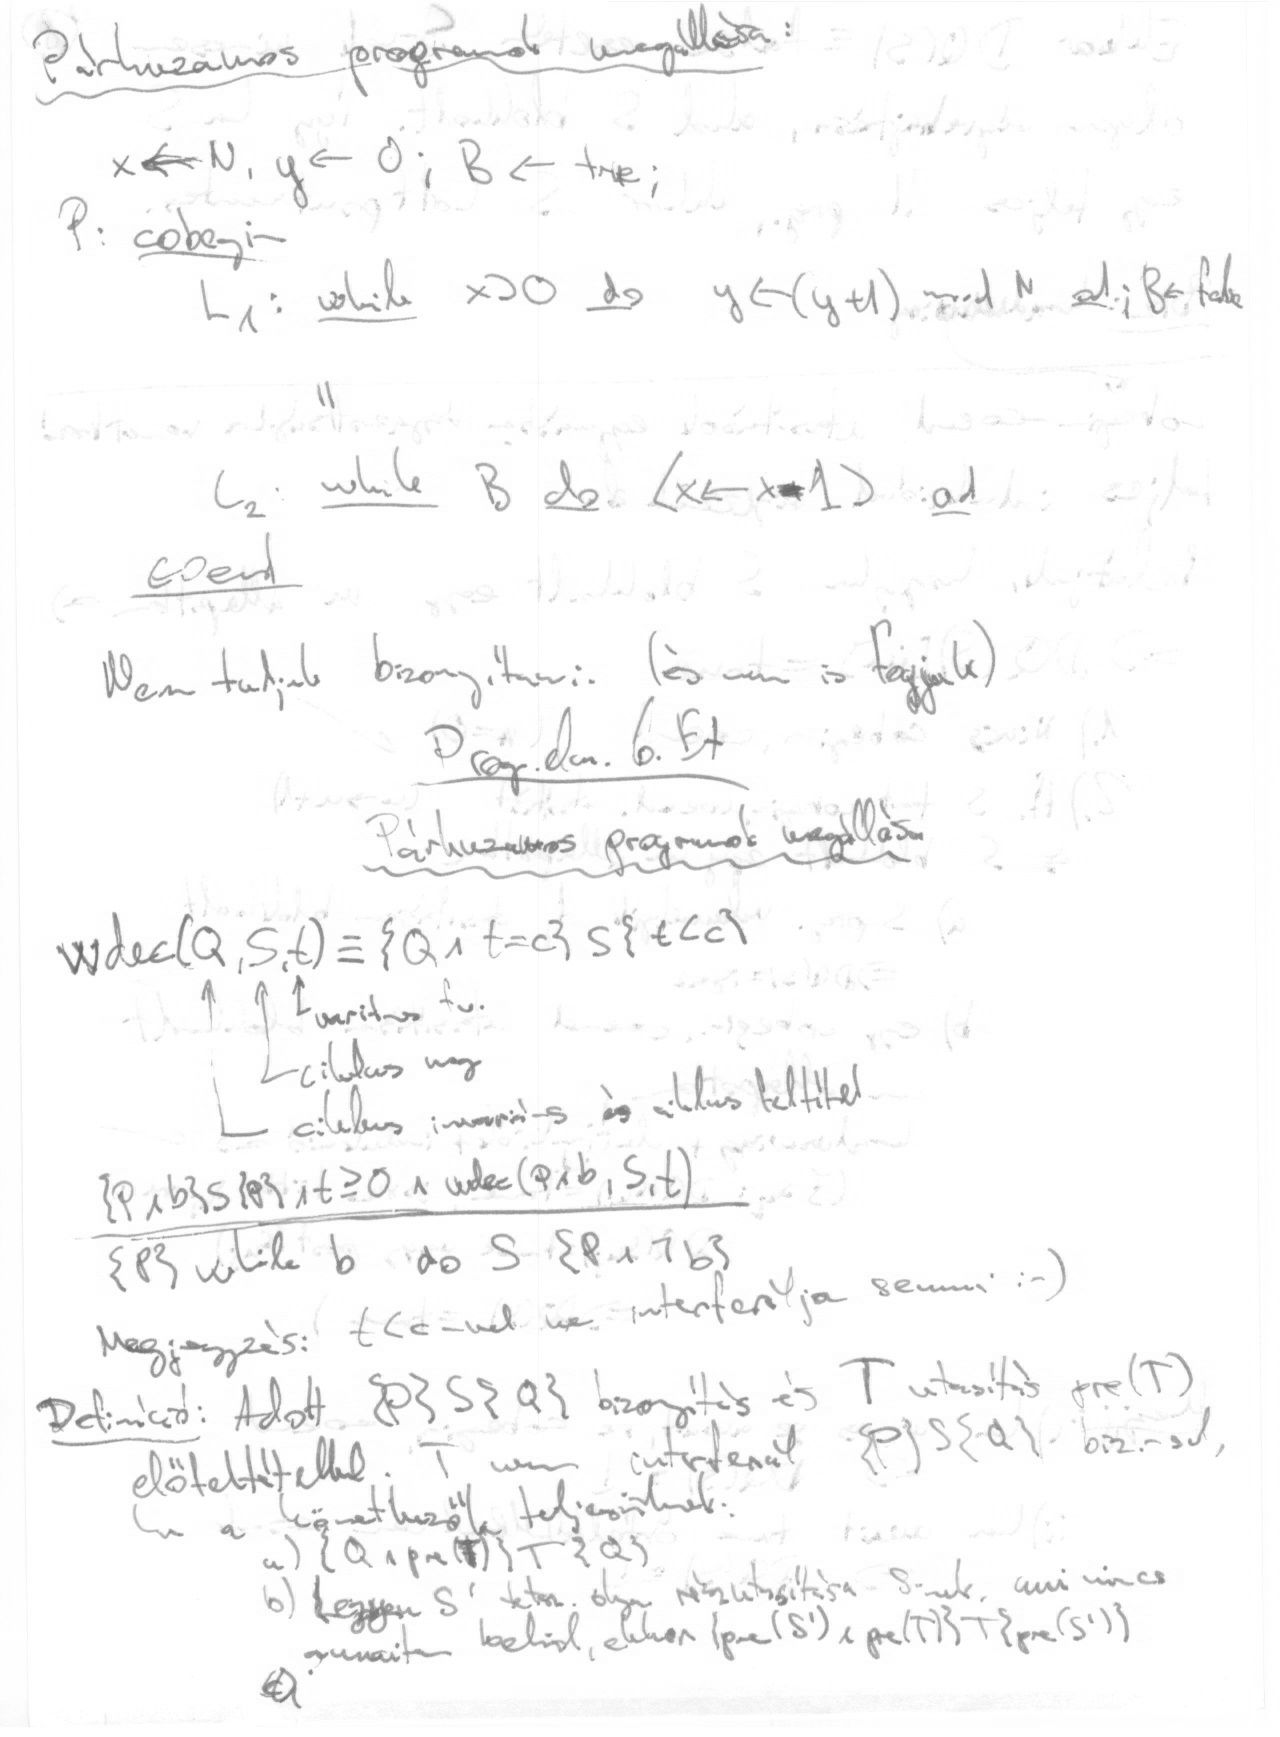 Párhuzamos programok megállása:
x ← N, y ← 0; B ← true;
P: cobegin
L₁: while x>0 do y ← (y+1) mod N od; B ← false
||
L₂: while B do ⟨x ← x-1⟩ od
coend
Nem tudjuk bizonyítani. (és nem is fogjuk)
Prog. 6. Ea
Párhuzamos programok megállása
wdec(Q,S,t) ≡ {Q ∧ t=c} S {t<c}
variáns fv.
ciklus mag
ciklus invariáns és ciklus feltétel
{P∧b} S {P} ∧ t≥0 ∧ wdec(P∧b, S, t)
{P} while b do S {P ∧ ¬b}
Megjegyzés: t<c-vel ne interferálja semmi :-)
Definíció: Adott {P} S {Q} bizonyítás és T utasítás pre(T)
előfeltétellel. T nem interferál {P} S {Q} biz.-sal,
ha a következők teljesülnek:
a) {Q ∧ pre(T)} T {Q}
b) Legyen S' tetsz. olyan részutasítása S-nek, ami nincs
await-en belül, ekkor {pre(S') ∧ pre(T)} T {pre(S')}